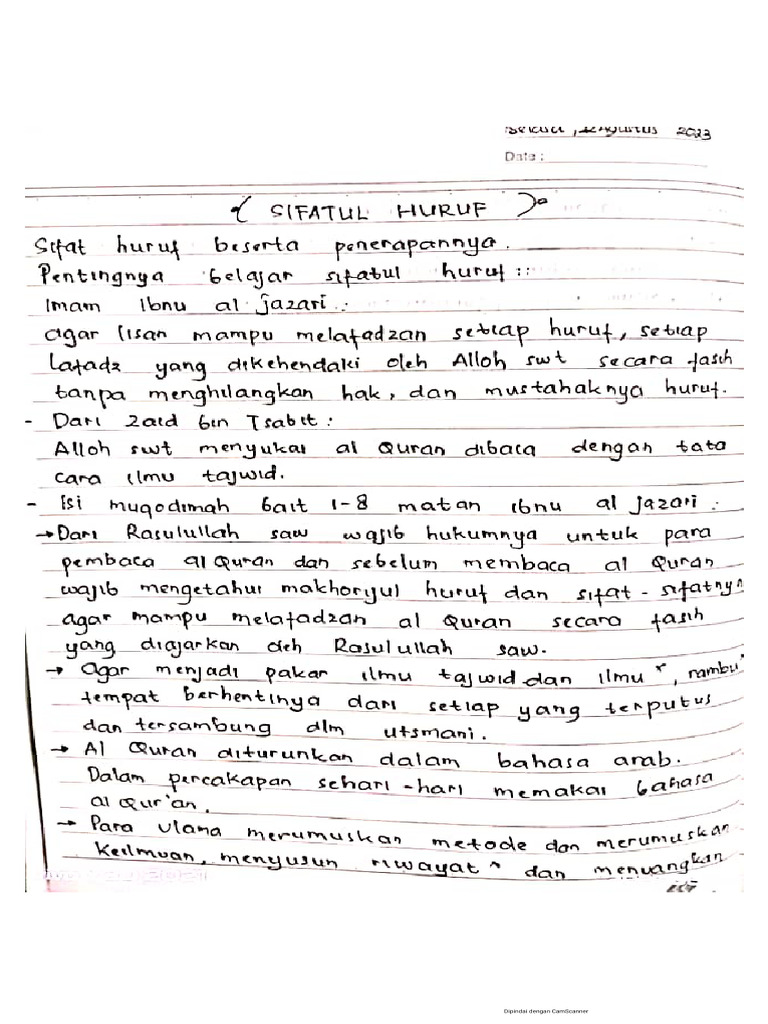 Agustus 2023
Date :
SIFATUL HURUF
Sifat huruf beserta penerapannya.
Pentingnya belajar sifatul huruf ::
Imam Ibnu al jazari :
agar lisan mampu melafadzan setiap huruf, setiap
Lafadz yang dikehendaki oleh Alloh swt secara fasih
tanpa menghilangkan hak, dan mustahaknya huruf.
- Dari Zaid bin Tsabit :
Alloh swt menyukai al Quran dibaca dengan tata
cara ilmu tajwid.
- Isi muqodimah bait 1-8 matan ibnu al jazari :
→ Dari Rasulullah saw wajib hukumnya untuk para
pembaca al Quran dan sebelum membaca al Quran
wajib mengetahui makhorijul huruf dan sifat - sifatnya
agar mampu melafadzan al Quran secara fasih
yang diajarkan oleh Rasulullah saw.
→ Agar menjadi pakar ilmu tajwid dan ilmu ", rambu"
tempat berhentinya dari setiap yang terputus
dan tersambung dlm utsmani.
→ Al Quran diturunkan dalam bahasa arab.
Dalam percakapan sehari-hari memakai bahasa
al Qur'an.
→ Para ulama merumuskan metode dan merumuskan
Keilmuan, menyusun riwayat " dan menuangkan
Dipindai dengan CamScanner